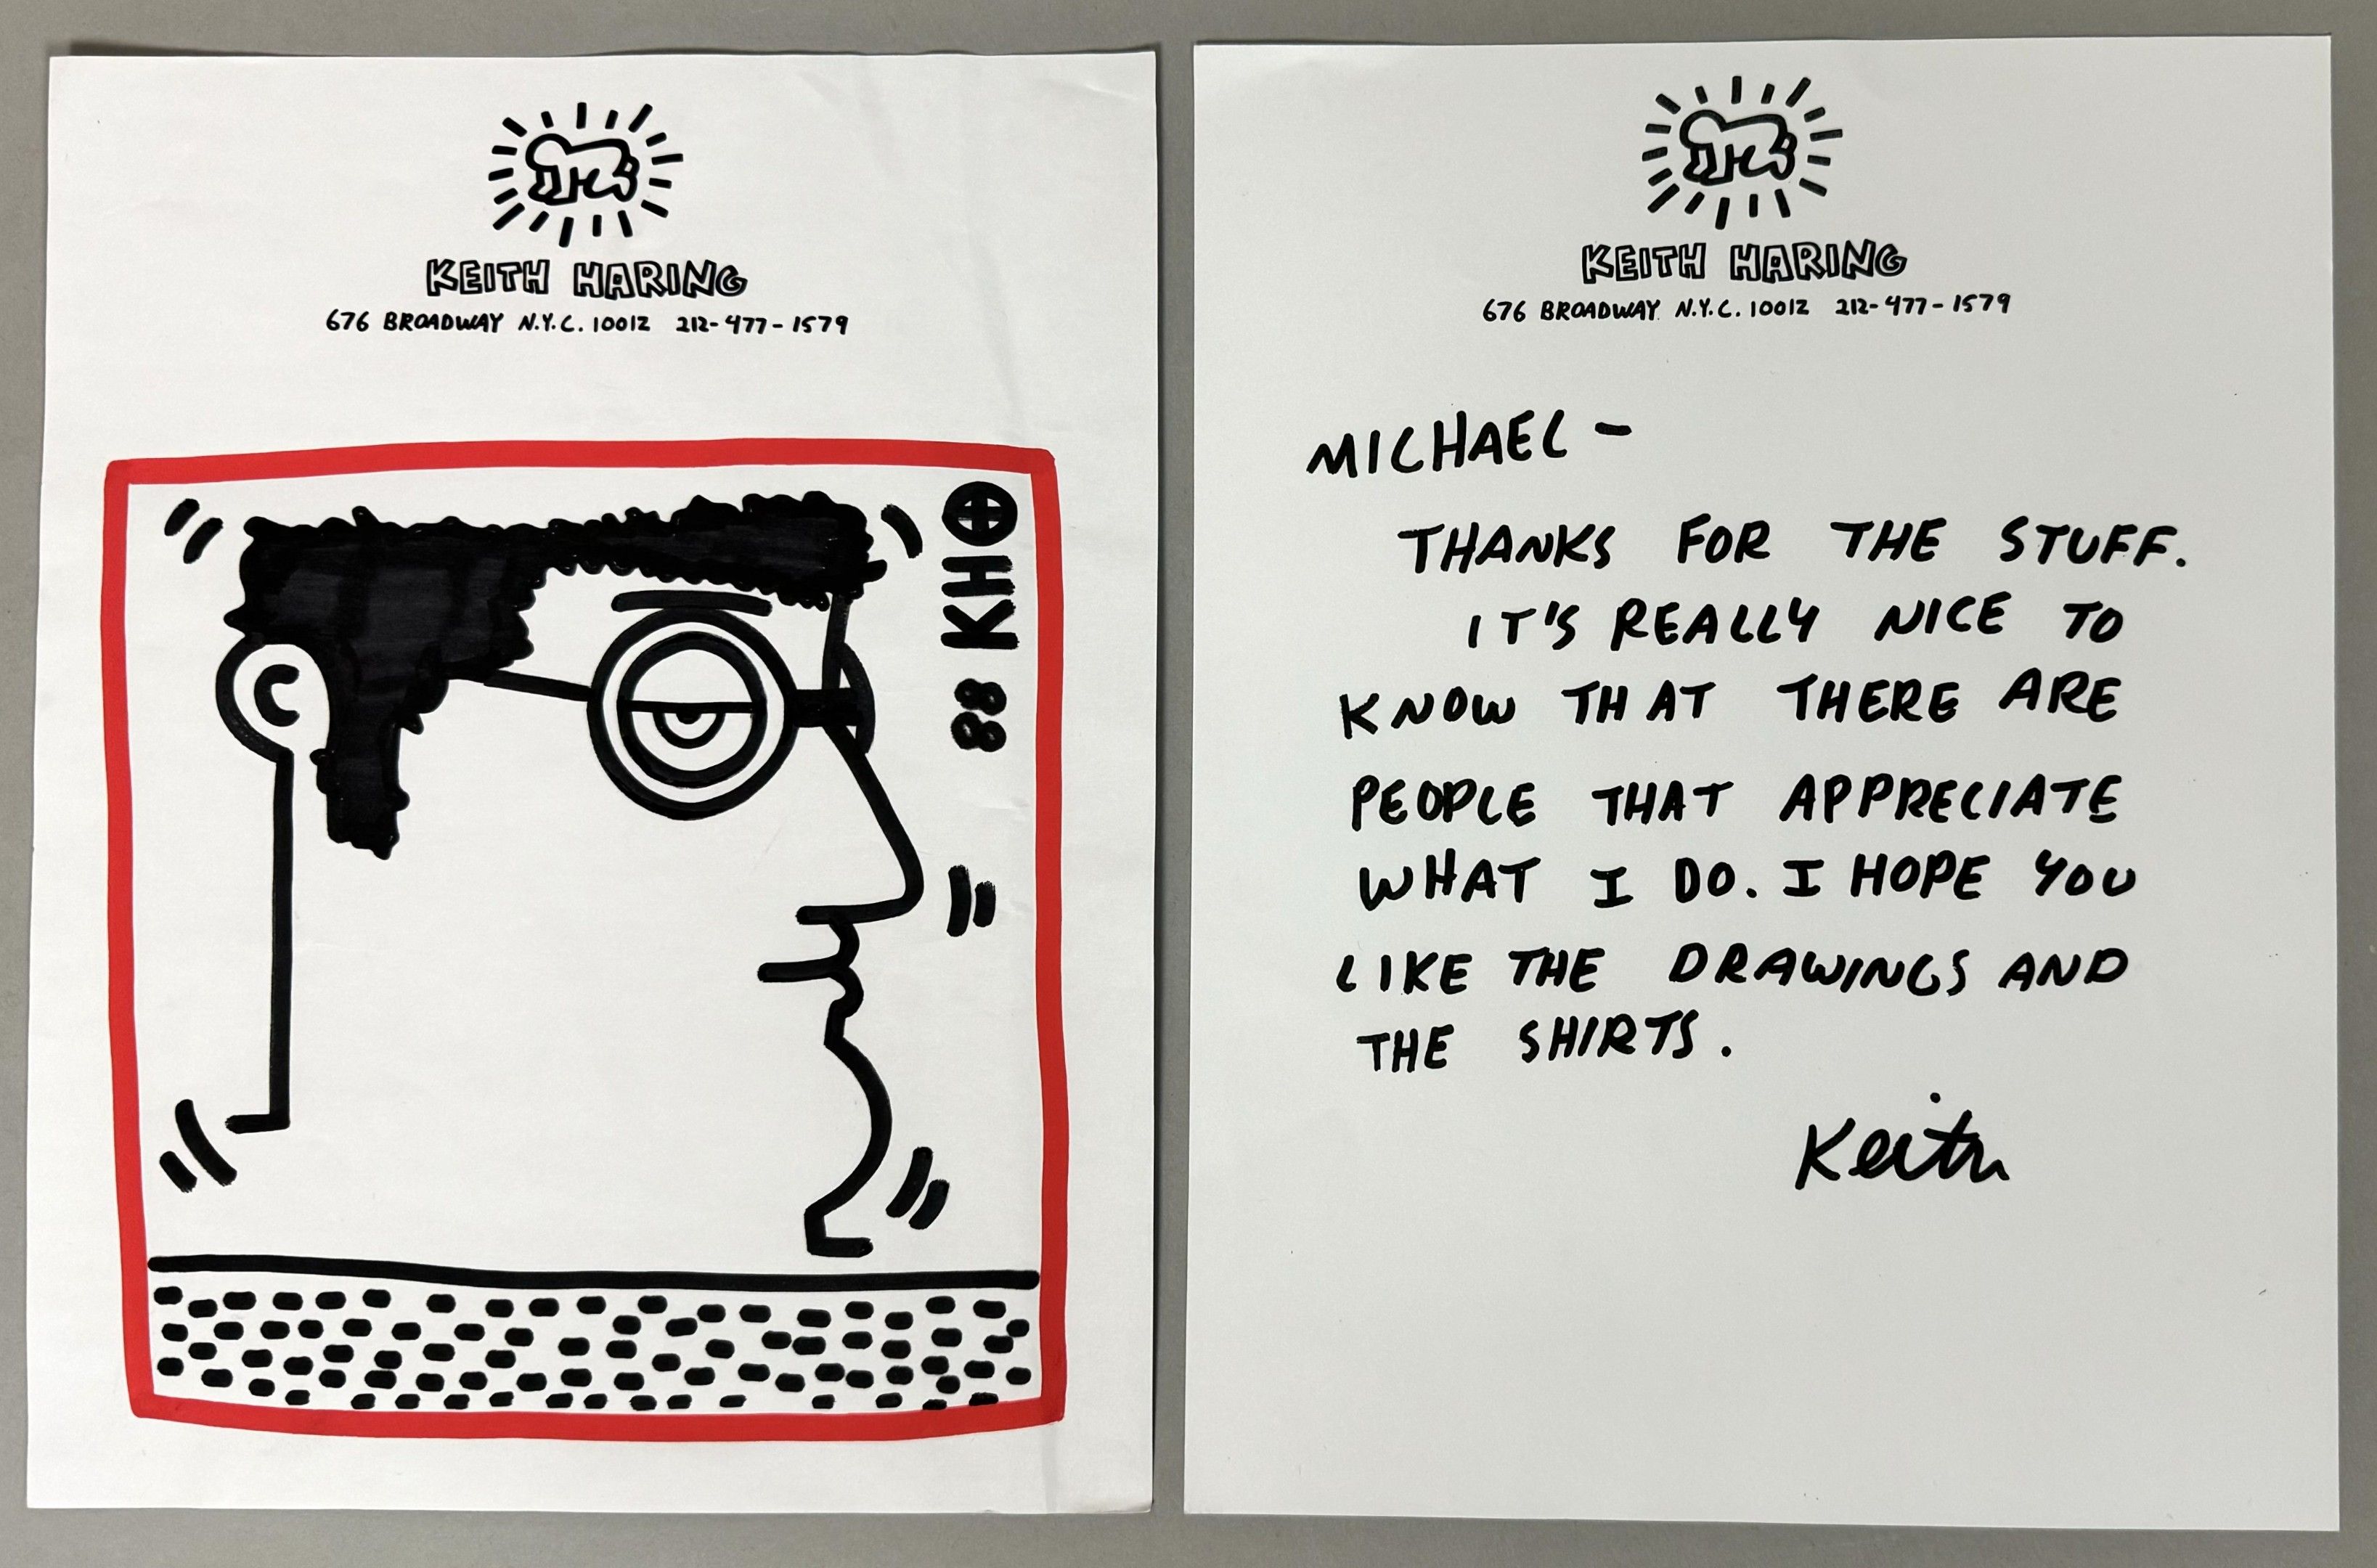 KEITH HARING
676 BROADWAY N.Y.C. 10012 212-477-1579
88 KH⊕
KEITH HARING
676 BROADWAY N.Y.C. 10012 212-477-1579
MICHAEL –
THANKS FOR THE STUFF.
IT'S REALLY NICE TO
KNOW THAT THERE ARE
PEOPLE THAT APPRECIATE
WHAT I DO. I HOPE YOU
LIKE THE DRAWINGS AND
THE SHIRTS.
Keith